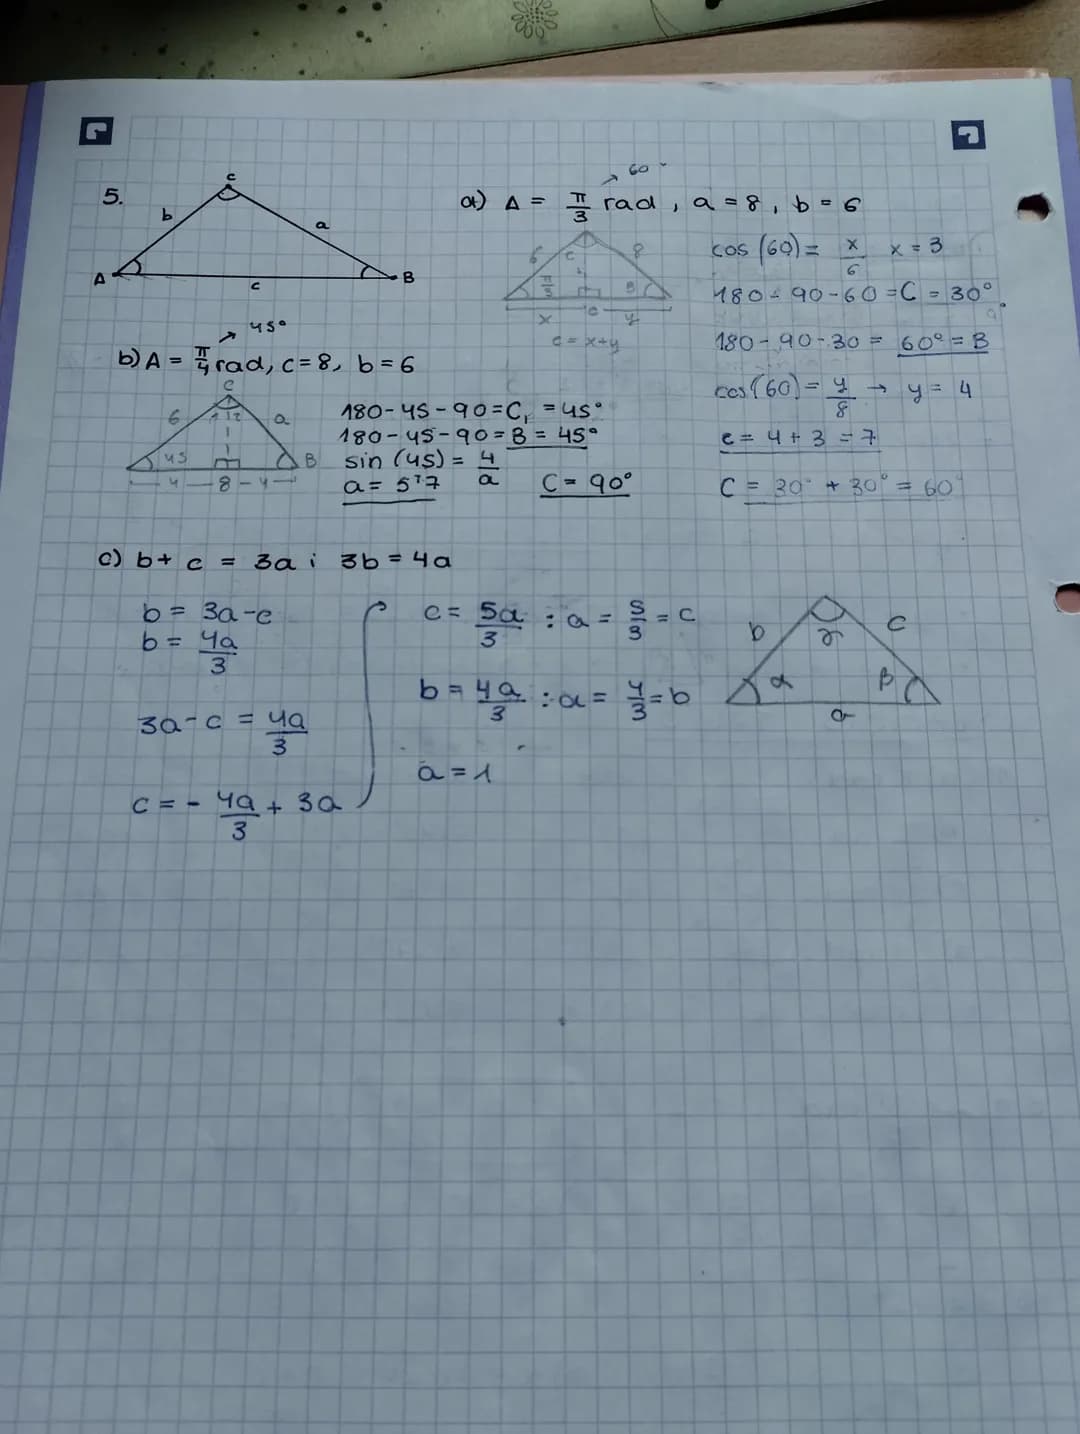 5.
C
b
a
A
c
B
a) A = π/3 rad, a = 8, b = 6
60°
6
8
C
π/3
B
x
c
y
c = x+y
cos (60) = x/6 x = 3
180 - 90 - 60 = C = 30°
180 - 90 - 30 = 60° = B
cos(60) = y/8 → y = 4
c = 4 + 3 = 7
C = 30° + 30° = 60°
45°
b) A = π/4 rad, c = 8, b = 6
C
6
1
2
a
45
B
4 - 8 - 4
180 - 45 - 90 = C₁ = 45°
180 - 45 - 90 = B = 45°
sin (45) = 4/a
a = 5'7
C = 90°
c) b + c = 3a i 3b = 4a
b = 3a - c
b = 4a/3
3a - c = 4a/3
c = - 4a/3 + 3a
c = 5a/3 : a = 5/3 = c
b = 4a/3 : a = 4/3 = b
a = 1
b
γ
c
α
β
a